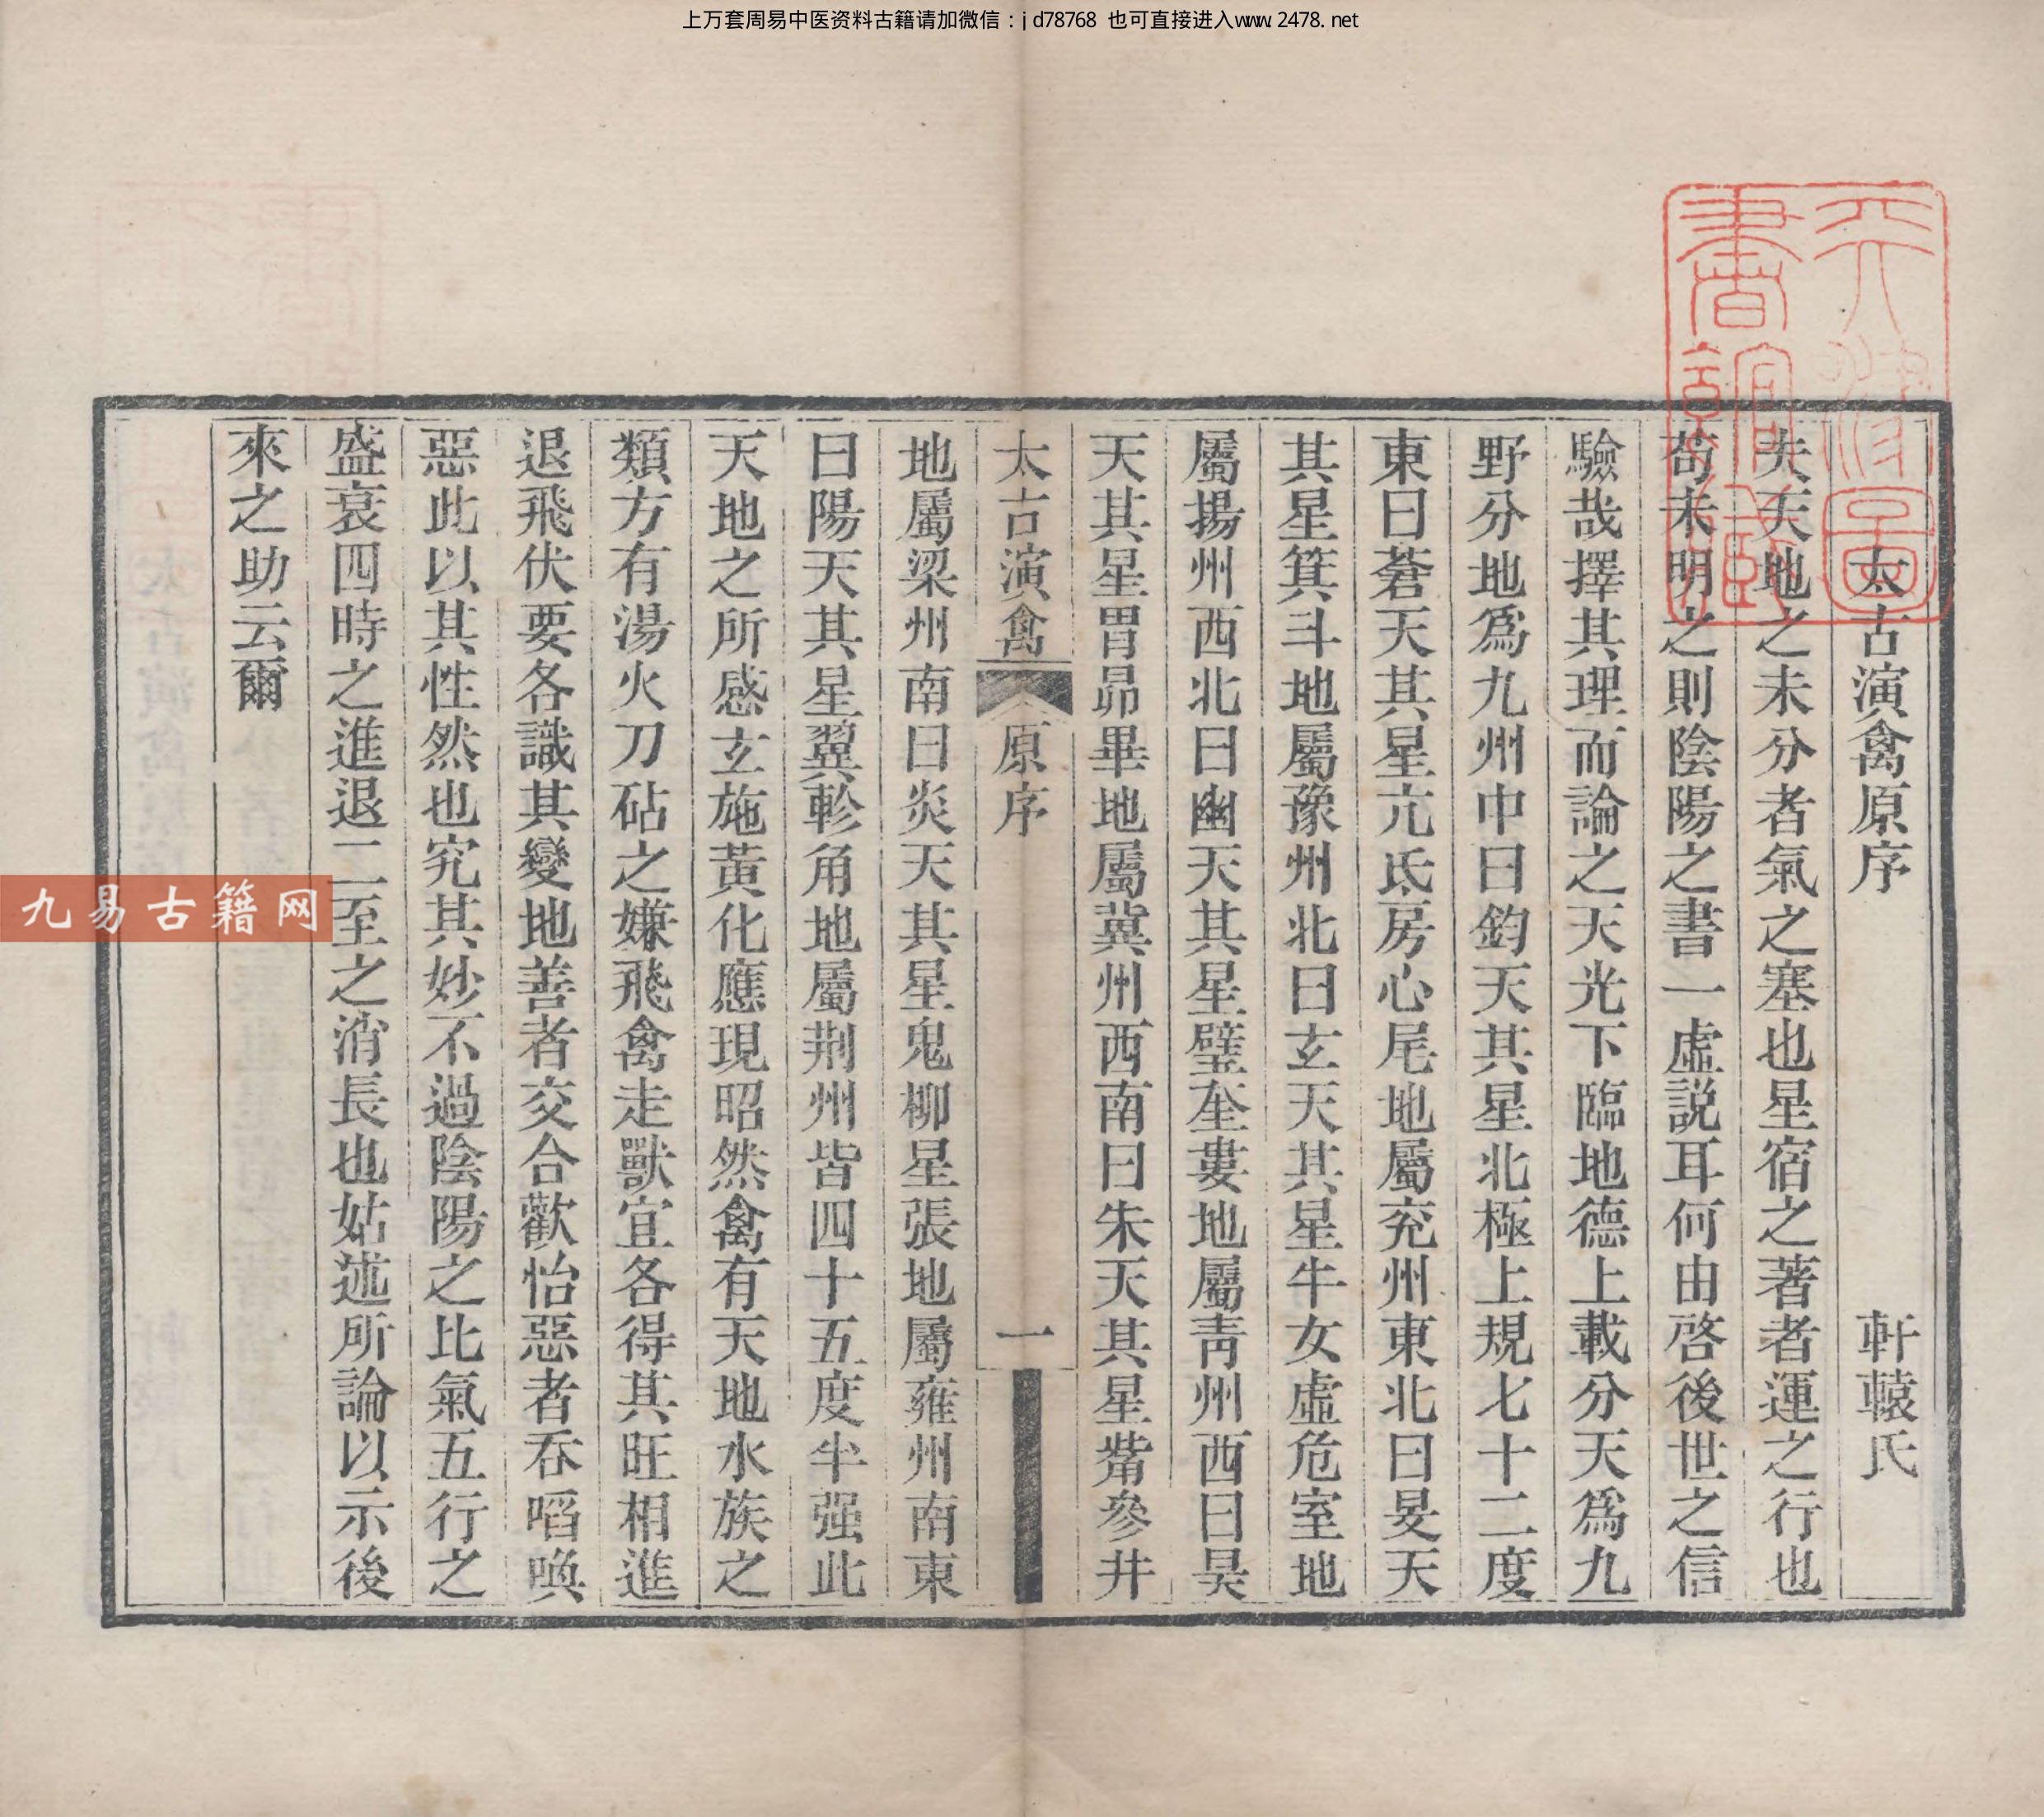 上万套周易中医资料古籍请加微信：jd78768 也可直接进入www.2478.net
天津圖書館館藏
太古演禽原序 軒轅氏
夫天地之未分者氣之塞也星宿之著者運之行也
苟未明之則陰陽之書一虛説耳何由啓後世之信
驗哉擇其理而論之天光下臨地德上載分天爲九
野分地爲九州中曰鈞天其星北極上規七十二度
東曰蒼天其星亢氐房心尾地屬兖州東北曰旻天
其星箕斗地屬豫州北曰玄天其星牛女虛危室地
屬揚州西北曰幽天其星壁奎婁地屬靑州西曰昊
天其星胃昴畢地屬冀州西南曰朱天其星觜參井
太古演禽 原序 一
地屬梁州南曰炎天其星鬼柳星張地屬雍州南東
曰陽天其星翼軫角地屬荆州皆四十五度半强此
天地之所感玄施黃化應現昭然禽有天地水族之
類方有湯火刀砧之嫌飛禽走獸宜各得其旺相進
退飛伏要各識其變地善者交合歡怡惡者吞啗喚
惡此以其性然也究其妙不過陰陽之比氣五行之
盛衰四時之進退二至之消長也姑述所論以示後
來之助云爾
九易古籍网